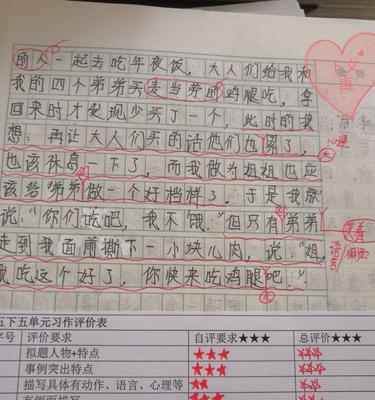 的人一起去吃年夜饭，大人们给我和
我的四个弟弟买麦当劳的鸡腿吃，拿
回来时才发现少买了一个，此时的我
想：再让大人们买的话他们也累了，
也该休息一下了，而我做为姐姐也应
该给弟弟做一个好档样了，于是我就
说："你们吃吧，我不饿。"但只有弟弟
走到我面前撕下一小块儿肉，说："姐，
我吃这个好了，你快来吃鸡腿吧！"
文
心理
语言
侧面
五下五单元习作评价表
序号 评价要求 自评要求★★★ 总评价★★★
拟题人物+特点 ★★★ ☆☆☆
事例突出特点 ★★★ ☆☆☆
描写具体有动作、语言、心理等 ★★ ☆☆
有侧面描写